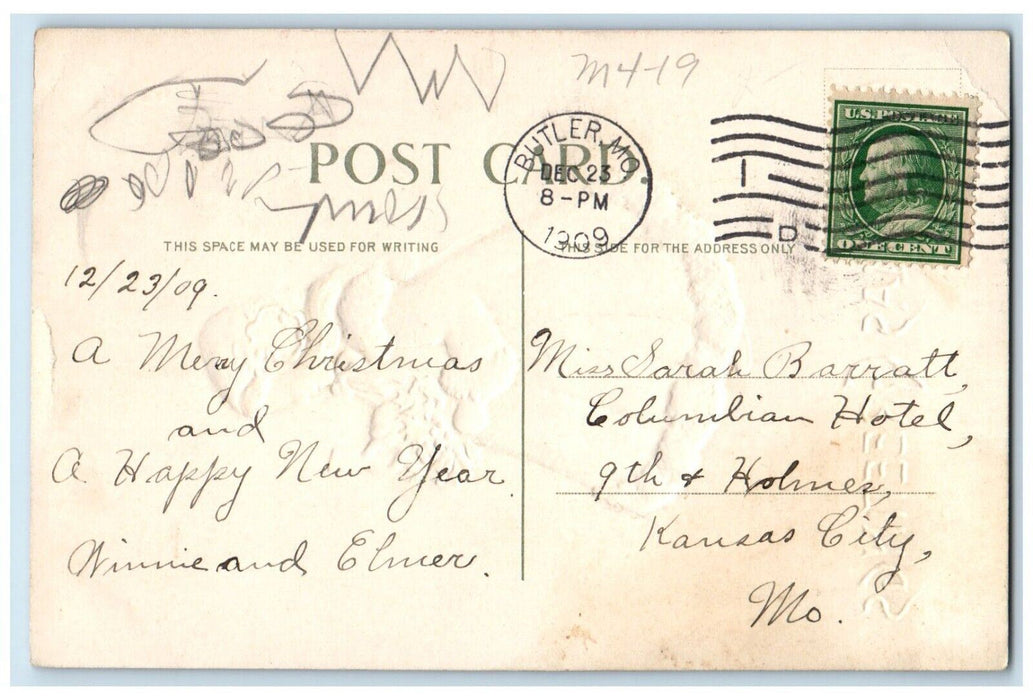 M4-19
POST CARD.
BUTLER, MO.
DEC 23
8-PM
1909
1
D
U.S. POSTAGE
ONE CENT
THIS SPACE MAY BE USED FOR WRITING
THIS SIDE FOR THE ADDRESS ONLY
12/23/09.
A Merry Christmas
and
A Happy New Year.
Winnie and Elmer.
Miss Sarah Barratt,
Columbian Hotel,
9th & Holmes,
Kansas City,
Mo.